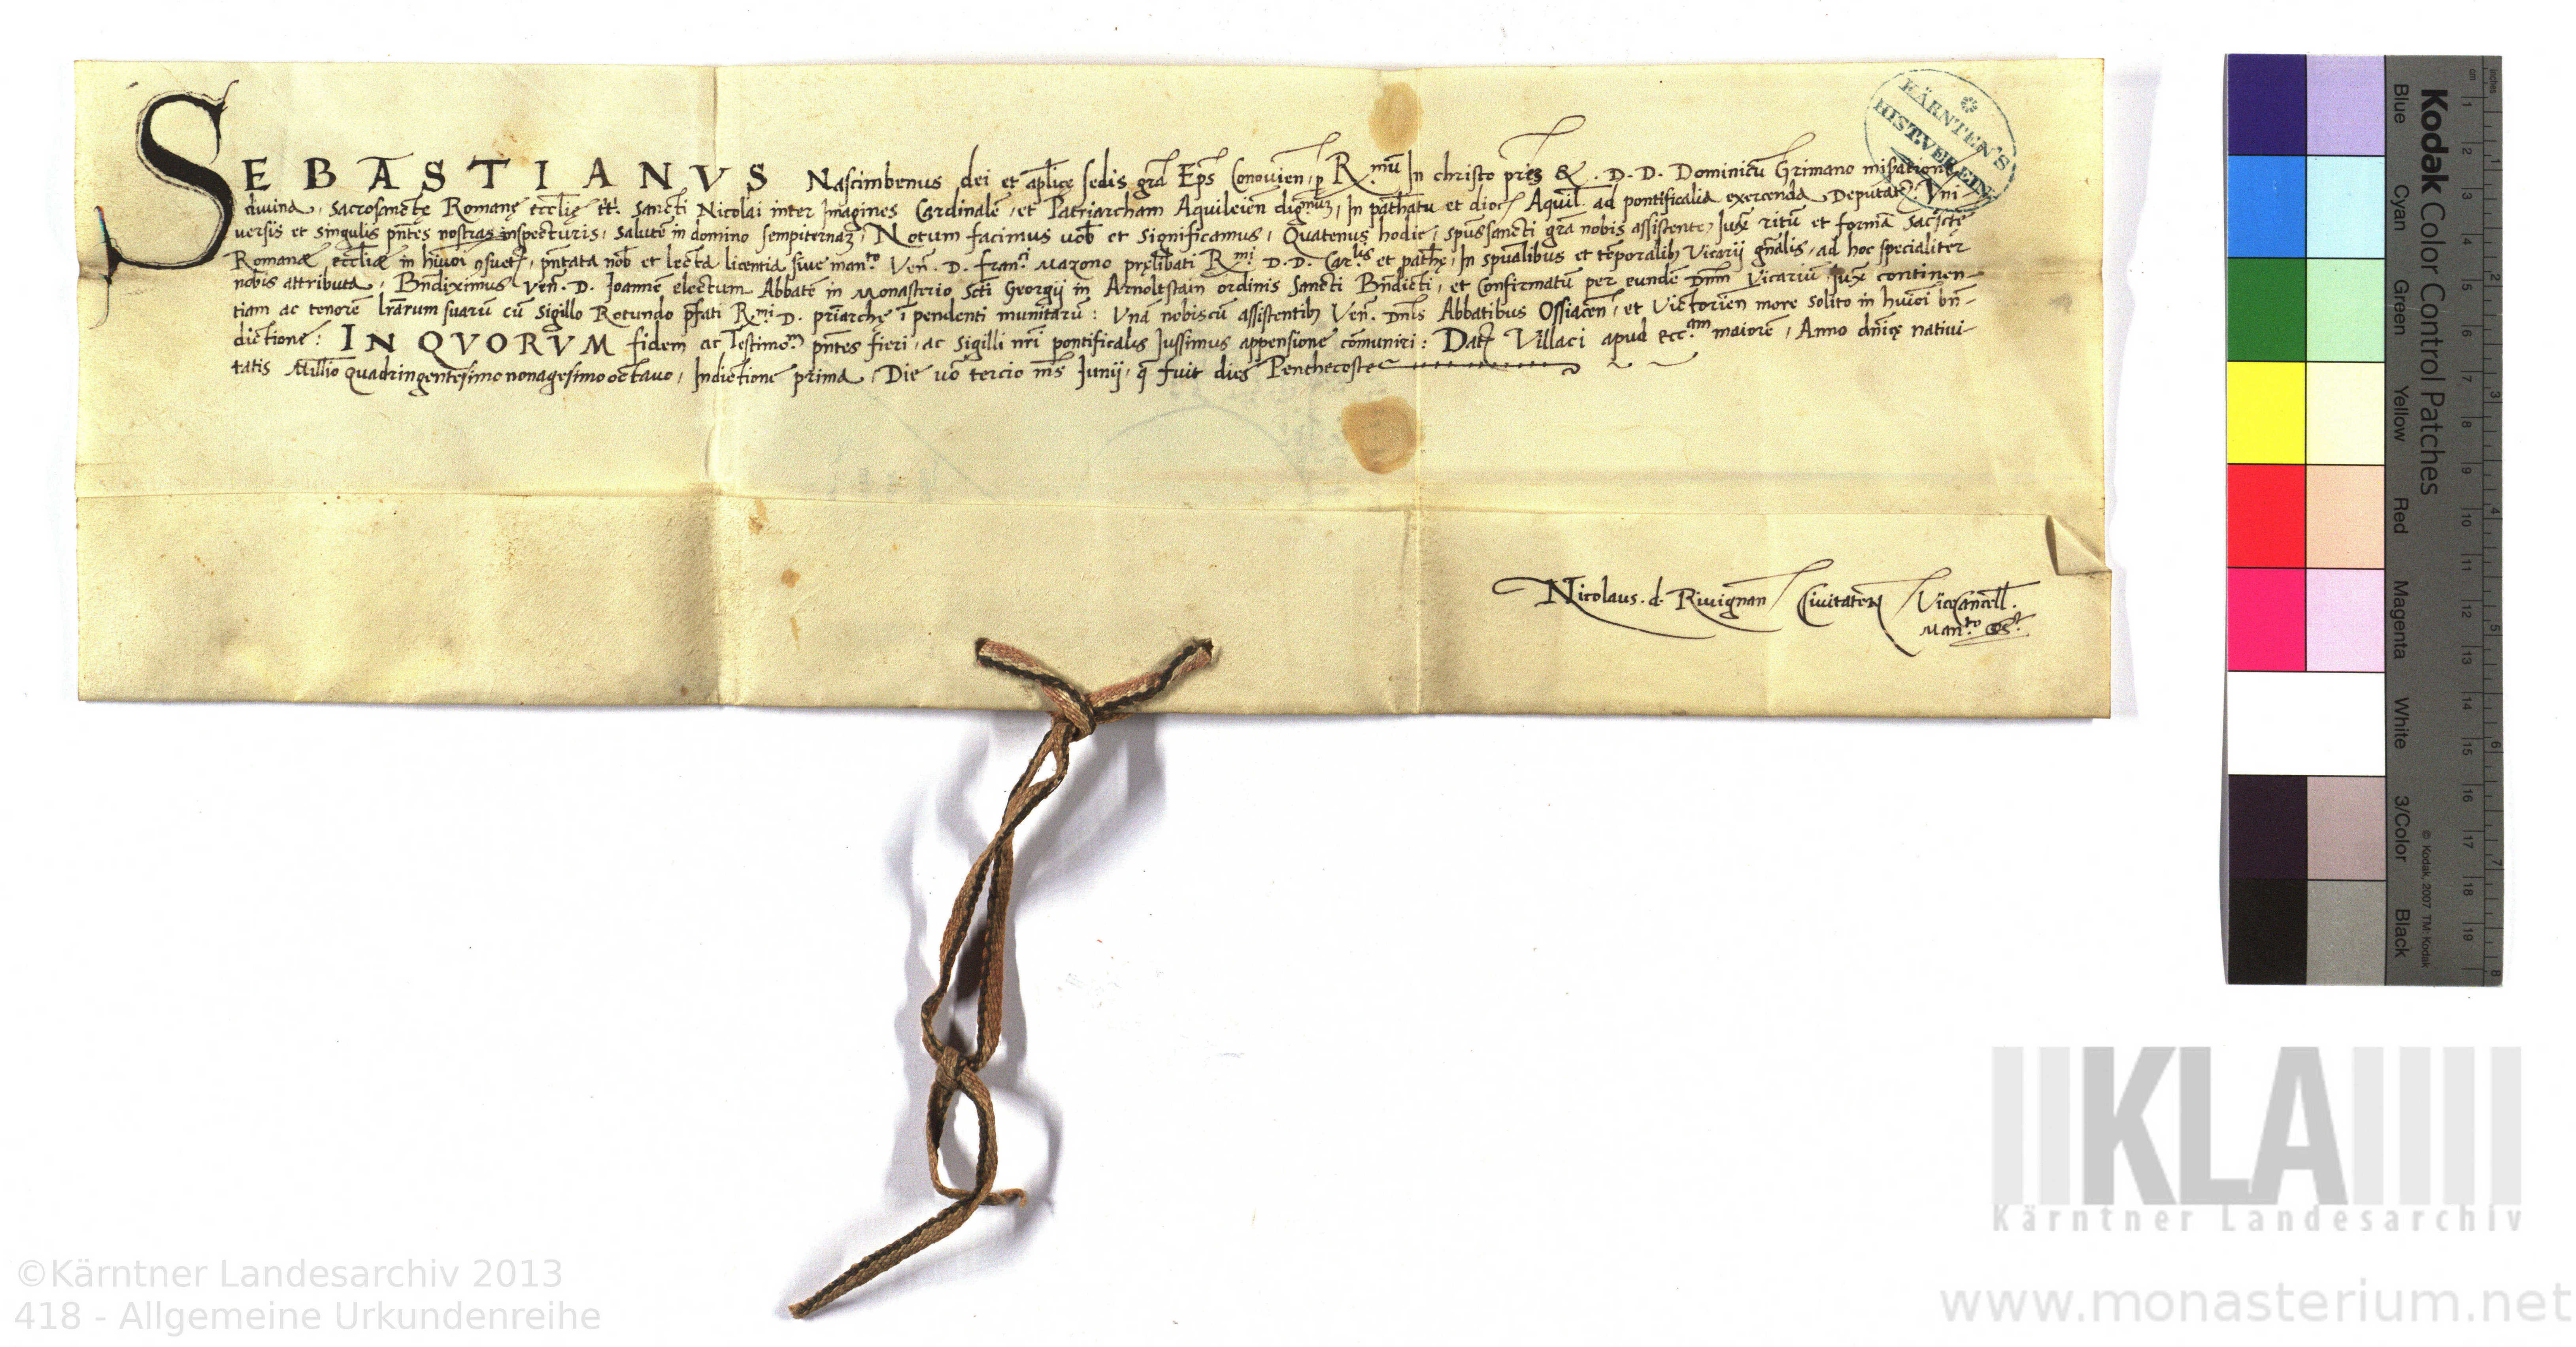 SEBASTIANVS Nascimbenus dei et aplicę sedis gra Eps Conouien, p R.mu In christo pres & . D. D. Dominicu Grimano misatione
diuina, sacrosanctę Romanę eccl̄ię tt. sancti Nicolai inter Imagines Cardinalē, et Patriarcham Aquileien̄ dig.muȝ, In pathatu et dioc̄ Aquil. ad pontificalia exercenda Deputat, Vni
uersis et singulis pn̄tes nostras inspecturis, salutē in domino sempiternaȝ, Notum facimus uob̄ et significamus, Quatenus hodie, spūssancti gr̄a nobis assistente, Iux̄ ritū et formā Sac̄sctę
Romanæ eccl̄iæ in hui̅oi ↄsuet, pn̄tata nob̄ et lecta licentia siue man.to Ven̄. D. Fran.ci Mazono pręlibati R.mi D. D. Car.lis et pathę, In spualibus et tēporalibȝ Vicarij gn̄alis, ad hoc specialiter
nobis attributa, Bn̄diximus Ven̄. D. Ioannē electum Abbatē in Monasterio Scti Georgij in Arnoltstain ordinis Sancti Bn̄dicti, et Confirmatum per eundē Dn̄m Vicariū Iux̄ continen-
tiam ac tenorē lrārum suarū cū sigillo Rotundo p̄fati R.mi D. priarchę ī pendenti munitarū: Vnā nobiscū assistentibȝ Ven̄. Dn̄is Abbatibus Ossiacen̄, et Victorien̄ more solito in hui̅oi bn̄-
dictione: IN QVORVM fidem ac Testimo.m pn̄tes fieri, ac Sigilli nr̄i pontificalis Iussimus appensione cōmuniri: Dat Villaci apud ecc.am maiorē, Anno dn̄icę natiui-
tatis Mill̄io quadringentesimo nonagesimo octauo, Indictione prima, Die uō tercio ms̄ Iunij, q̄ fuit dies Penthecostes
Nicolaus. d. Riuignan Ciuitaten Vicecancell.
Man.to
KÄRNTEN'S
HIST. VEREIN
Kodak Color Control Patches
Blue Cyan Green Yellow Red Magenta White 3/Color Black
© Kodak, 2007 TM: Kodak
cm 1 2 3 4 5 6 7 8 9 10 11 12 13 14 15 16 17 18 19
inches 1 2 3 4 5 6 7 8
KLA
Kärntner Landesarchiv
©Kärntner Landesarchiv 2013
418 - Allgemeine Urkundenreihe
www.monasterium.net